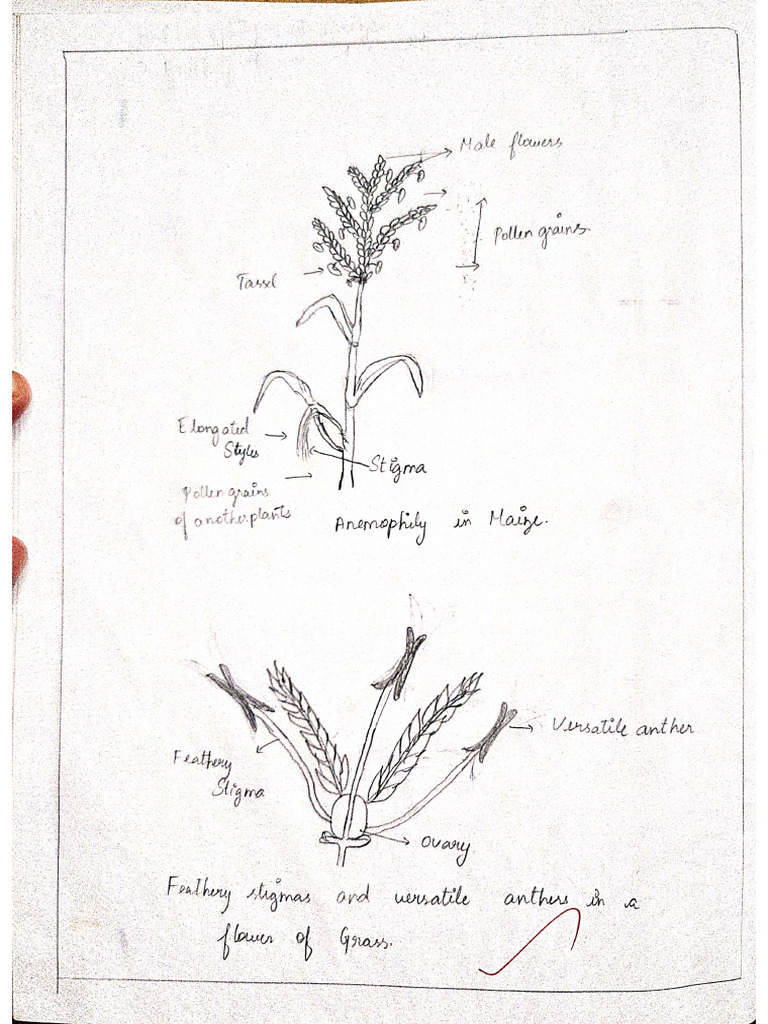 Male flowers
Pollen grains.
Tassel
Elongated
Styles
Stigma
Pollen grains
of another plants
Anemophily in Maize.
Versatile anther
Feathery
Stigma
Ovary.
Feathery stigmas and versatile anthers in a
flower of Grass.